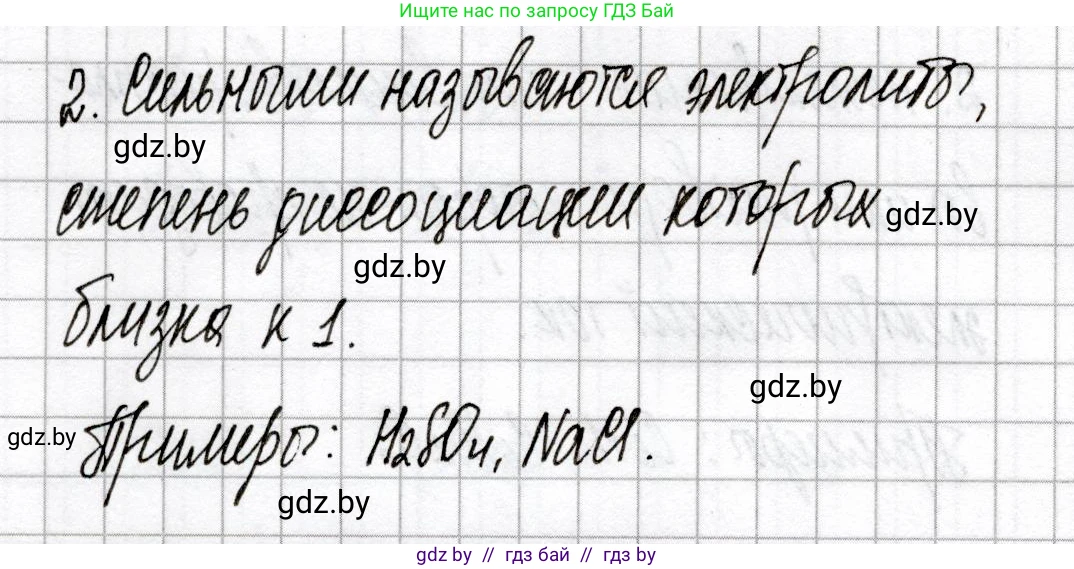 Ищите нас по запросу ГДЗ Бай
2. Сильными называются электролиты,
gdz.by
степень диссоциации которых gdz.by
gdz.by
близка к 1.
gdz.by
gdz.by Примеры: H₂SO₄, NaCl.
gdz.by
gdz by // гдз бай // гдз by